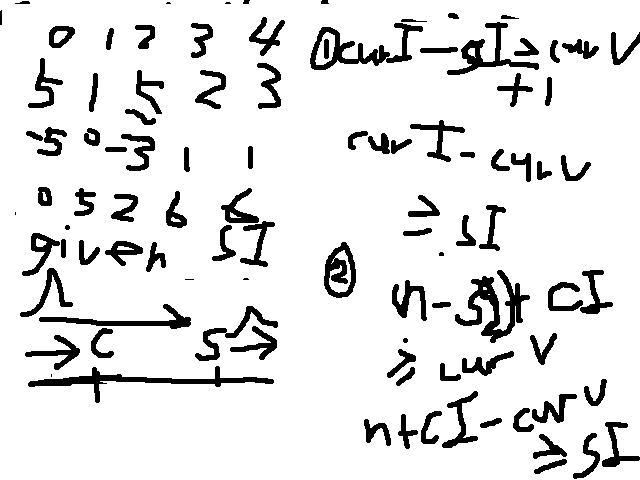 0 1 2 3 4
5 1 5 2 3
-5 0 -3 1 1
0 5 2 6 6
given sI
→ C S →
① curI - sI ≥ curV
+ 1
curI - curV
≥ sI
②
(n - sI) + CI
≥ curV
n + CI - curV
≥ SI